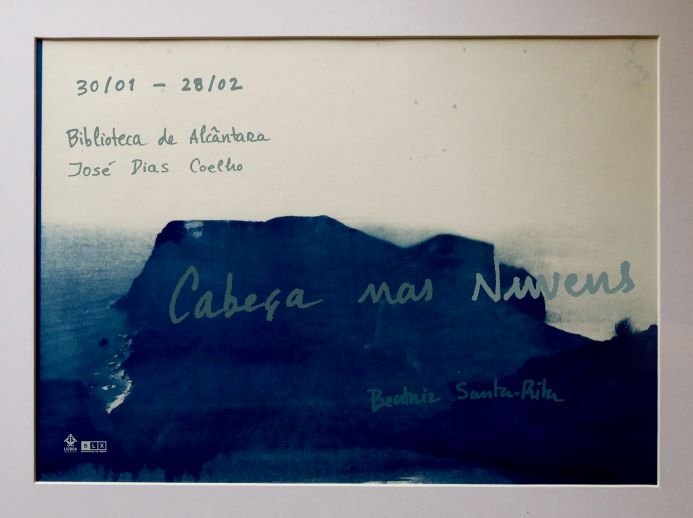 30/01 – 28/02
Biblioteca de Alcântara
José Dias Coelho
Cabeça nas Nuvens
Beatriz Santa-Rita
LISBOA
BLX